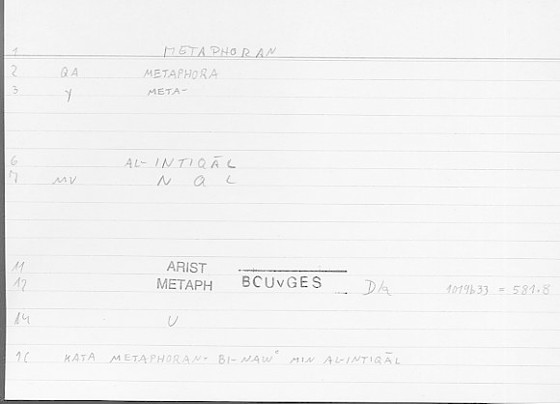 1 METAPHORAN
2 QA METAPHORA
3 γ META-
6 AL-INTIQĀL
7 MV N Q L
11 ARIST
12 METAPH BOUYGES Δ 12 1019b33 = 581.8
14 U
16 KATA METAPHORAN · BI-NAWʿ MIN AL-INTIQĀL